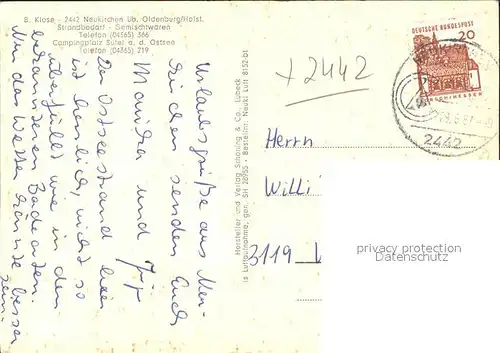 B. Klose - 2442 Neukirchen üb. Oldenburg/Holst.
Strandbedarf - Gemischtwaren
Telefon (04365) 366
Campingplatz Sütel a. d. Ostsee
Telefon (04365) 219
Urlaubsgrüße aus Neu-
kirchen senden Euch
Manita und
Der Ostseestrand hier
ist herrlich, nicht so
überfüllt wie in den
bekannteren Badeorten.
Nur das Wetter könnte besser
sein.
Hersteller und Verlag Schöning & Co., Lübeck
is Luftaufnahme, gen. SH 28955 - Bestellnr. Neuki Luft 8152 bt
+2442
DEUTSCHE BUNDESPOST
20
2442
Herrn
Willi
3119
privacy protection
Datenschutz